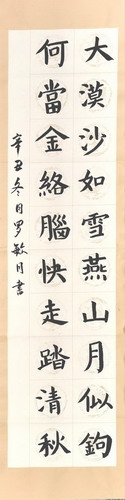 大漠沙如雪燕山月似鉤
何當金絡腦快走踏清秋
辛丑冬月罗敏月書